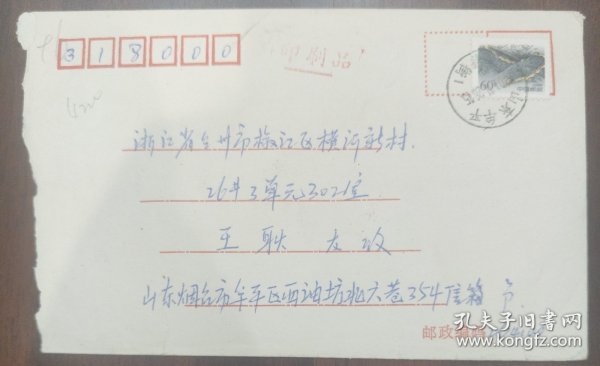 318000
印刷品
浙江省台州市椒江区横河新村
26井3单元302室
王耿友收
山东烟台市牟平区西油坊北六巷354信箱
邮政编码
孔夫子旧书网
kongfz.com